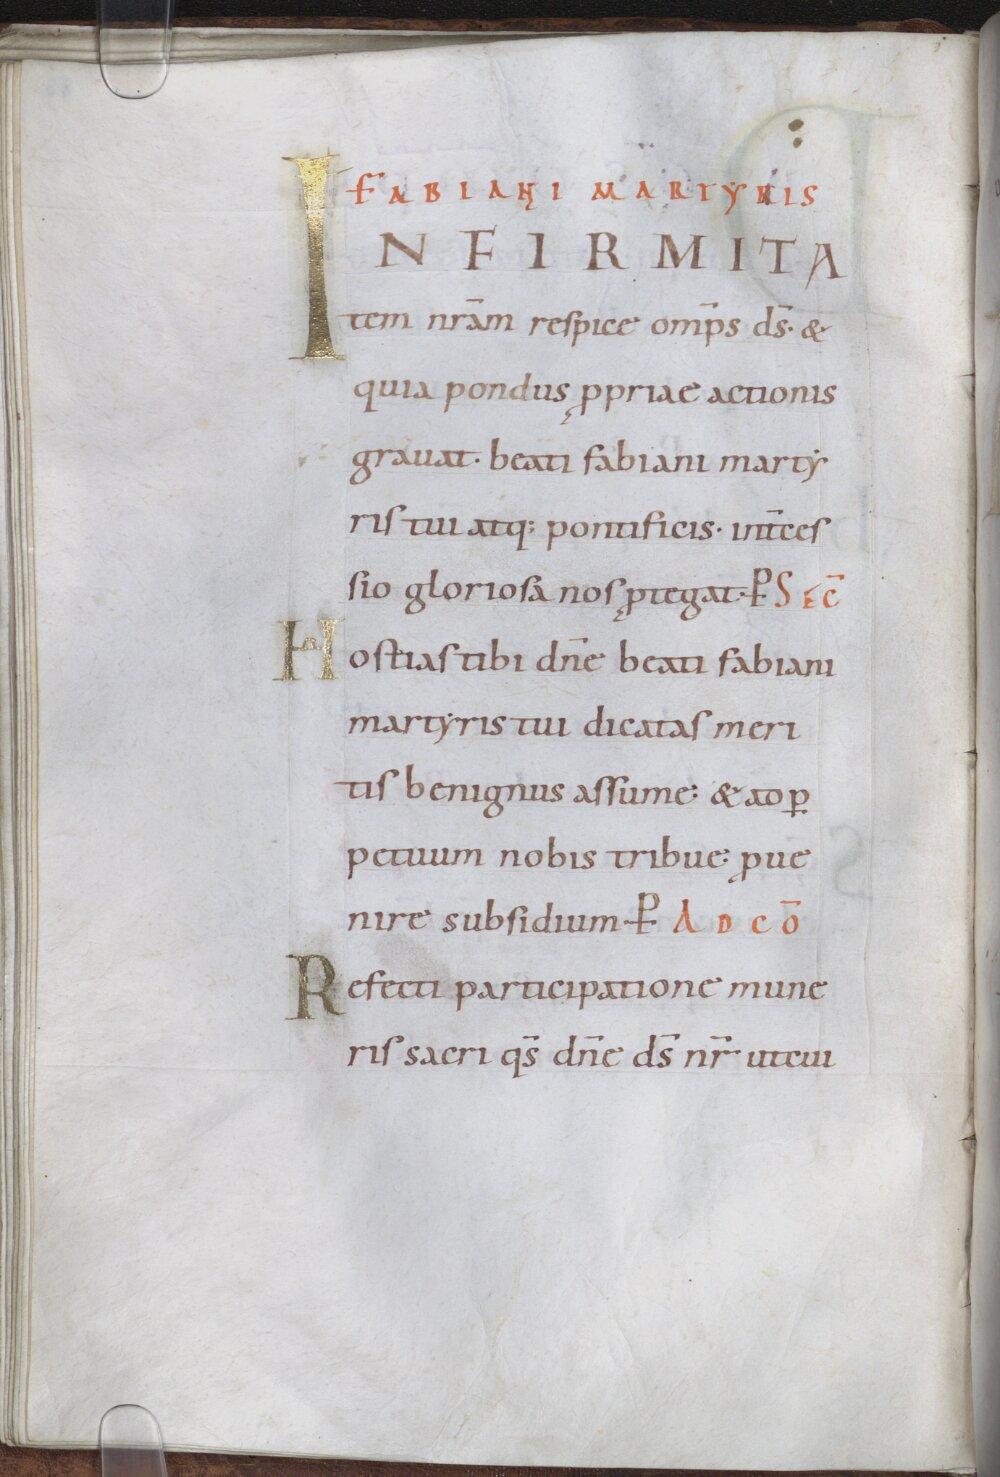 FABIANI MARTYRIS
INFIRMITA
tem nr̄am respice omp̄s ds̄· &
quia pondus ꝓpriae actionis
grauat· beati fabiani marty
ris tui atq; pontificis· int̄ces
sio gloriosa nos ꝓtegat· P SEC̄
Hostias tibi dn̄e beati fabiani
martyris tui dicatas meri
tis benignus assume· & ad ꝑ
petuum nobis tribue· ꝓue
nire subsidium· P AD CŌ
Refecti participatione mune
ris sacri qs̄ dn̄e ds̄ nr̄ ut cui